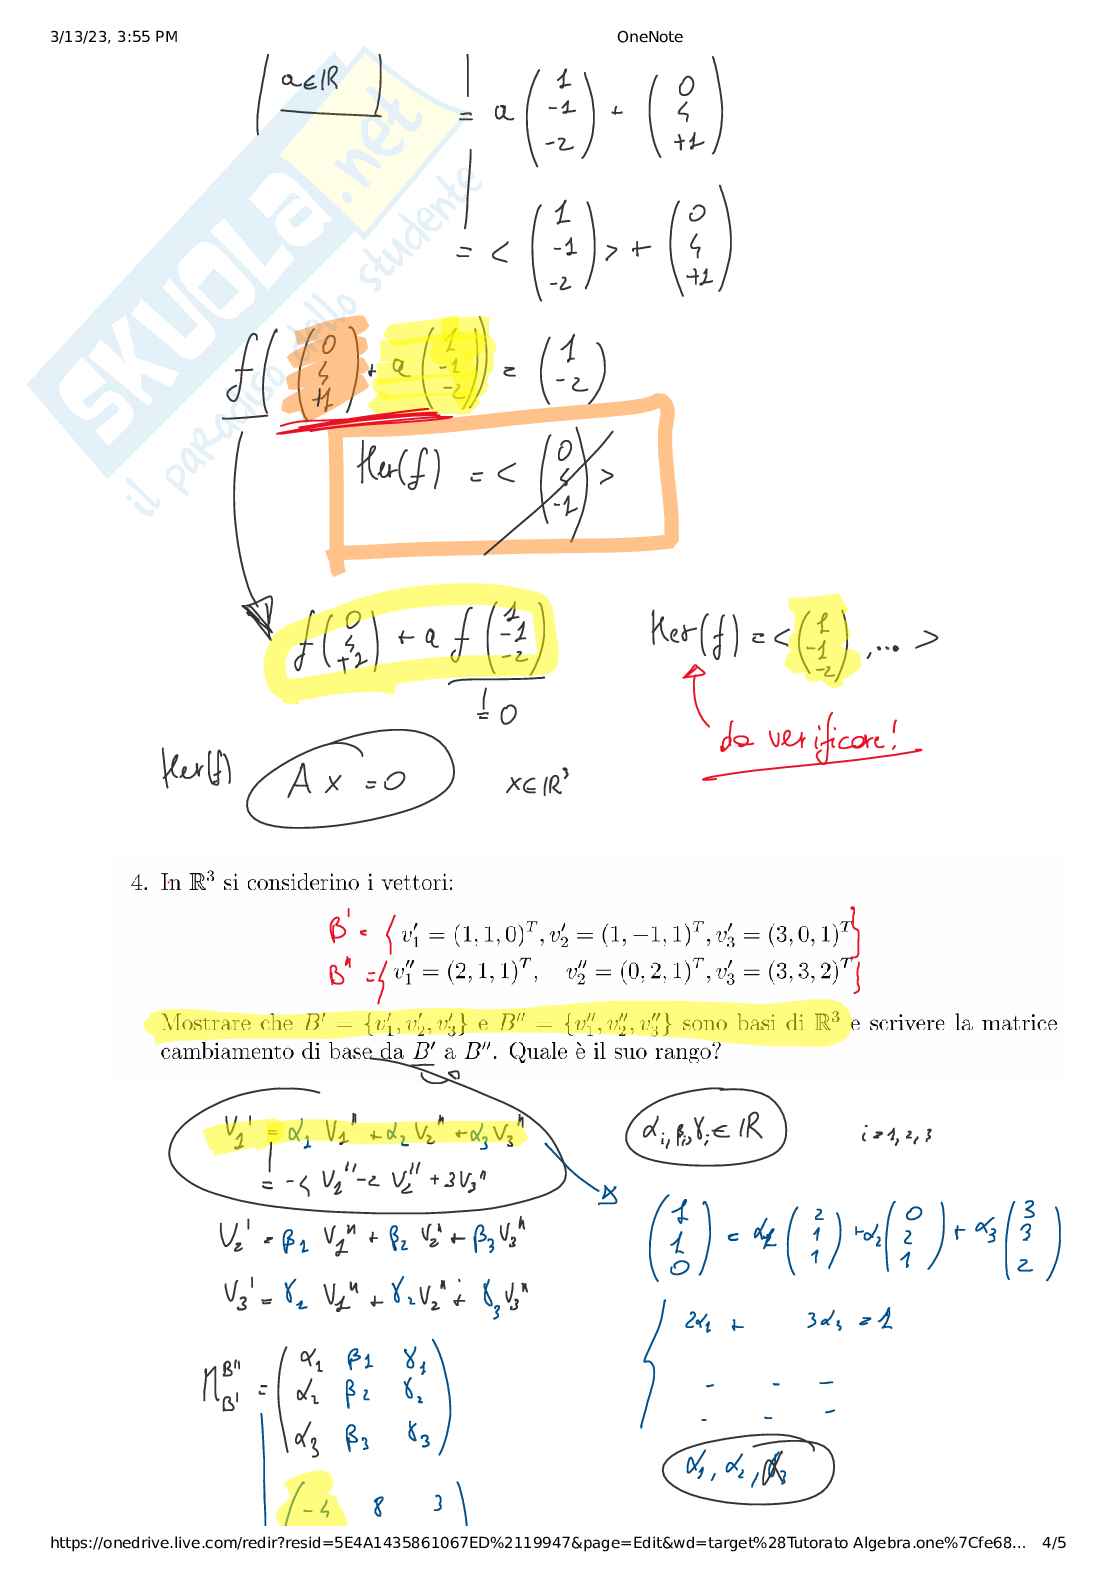 3/13/23, 3:55 PM
OneNote
a∈ℝ
= a (1 -1 -2) + (0 4 +1)
= < (1 -1 -2) > + (0 4 +1)
f( (0 4 +1) + a (1 -1 -2) ) = (1 -2)
Ker(f) = < (0 4 -1) >
f(0 4 +1) + a f(1 -1 -2)
= 0
Ker(f) = < (1 -1 -2) ,... >
da verificare!
Ker(f)
A x = 0
x∈ℝ³
SKUOLA.net
il paradiso dello studente
4. In ℝ³ si considerino i vettori:
B' = { v₁′ = (1, 1, 0)ᵀ, v₂′ = (1, −1, 1)ᵀ, v₃′ = (3, 0, 1)ᵀ }
B" = { v₁″ = (2, 1, 1)ᵀ, v₂″ = (0, 2, 1)ᵀ, v₃′ = (3, 3, 2)ᵀ }
Mostrare che B′ = {v₁′, v₂′, v₃′} e B″ = {v₁″, v₂″, v₃″} sono basi di ℝ³ e scrivere la matrice
cambiamento di base da B′ a B″. Quale è il suo rango?
V₁' = α₁ V₁" + α₂ V₂" + α₃ V₃"
= -4 V₁" -2 V₂" + 3V₃"
αᵢ, βᵢ, γᵢ ∈ ℝ
i = 1, 2, 3
V₂' = β₁ V₁" + β₂ V₂" + β₃ V₃"
V₃' = γ₁ V₁" + γ₂ V₂" + γ₃ V₃"
(1 1 0) = α₁ (2 1 1) + α₂ (0 2 1) + α₃ (3 3 2)
2α₁ + 3α₃ = 1
- - -
- - -
α₁, α₂, α₃
M B" B' = (α₁ β₁ γ₁
α₂ β₂ γ₂
α₃ β₃ γ₃)
(-4 8 3)
https://onedrive.live.com/redir?resid=5E4A1435861067ED%2119947&page=Edit&wd=target%28Tutorato Algebra.one%7Cfe68… 4/5